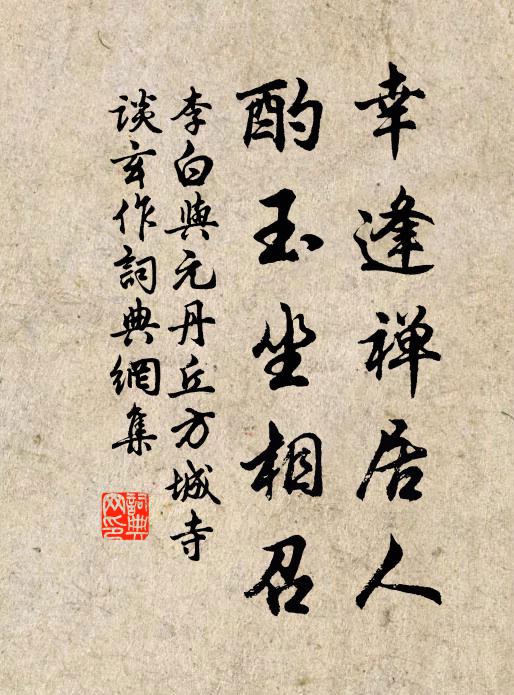 幸逢禅居人
酌玉坐相召
李白與元丹丘方城寺
談玄作詞典網集
詞典网印